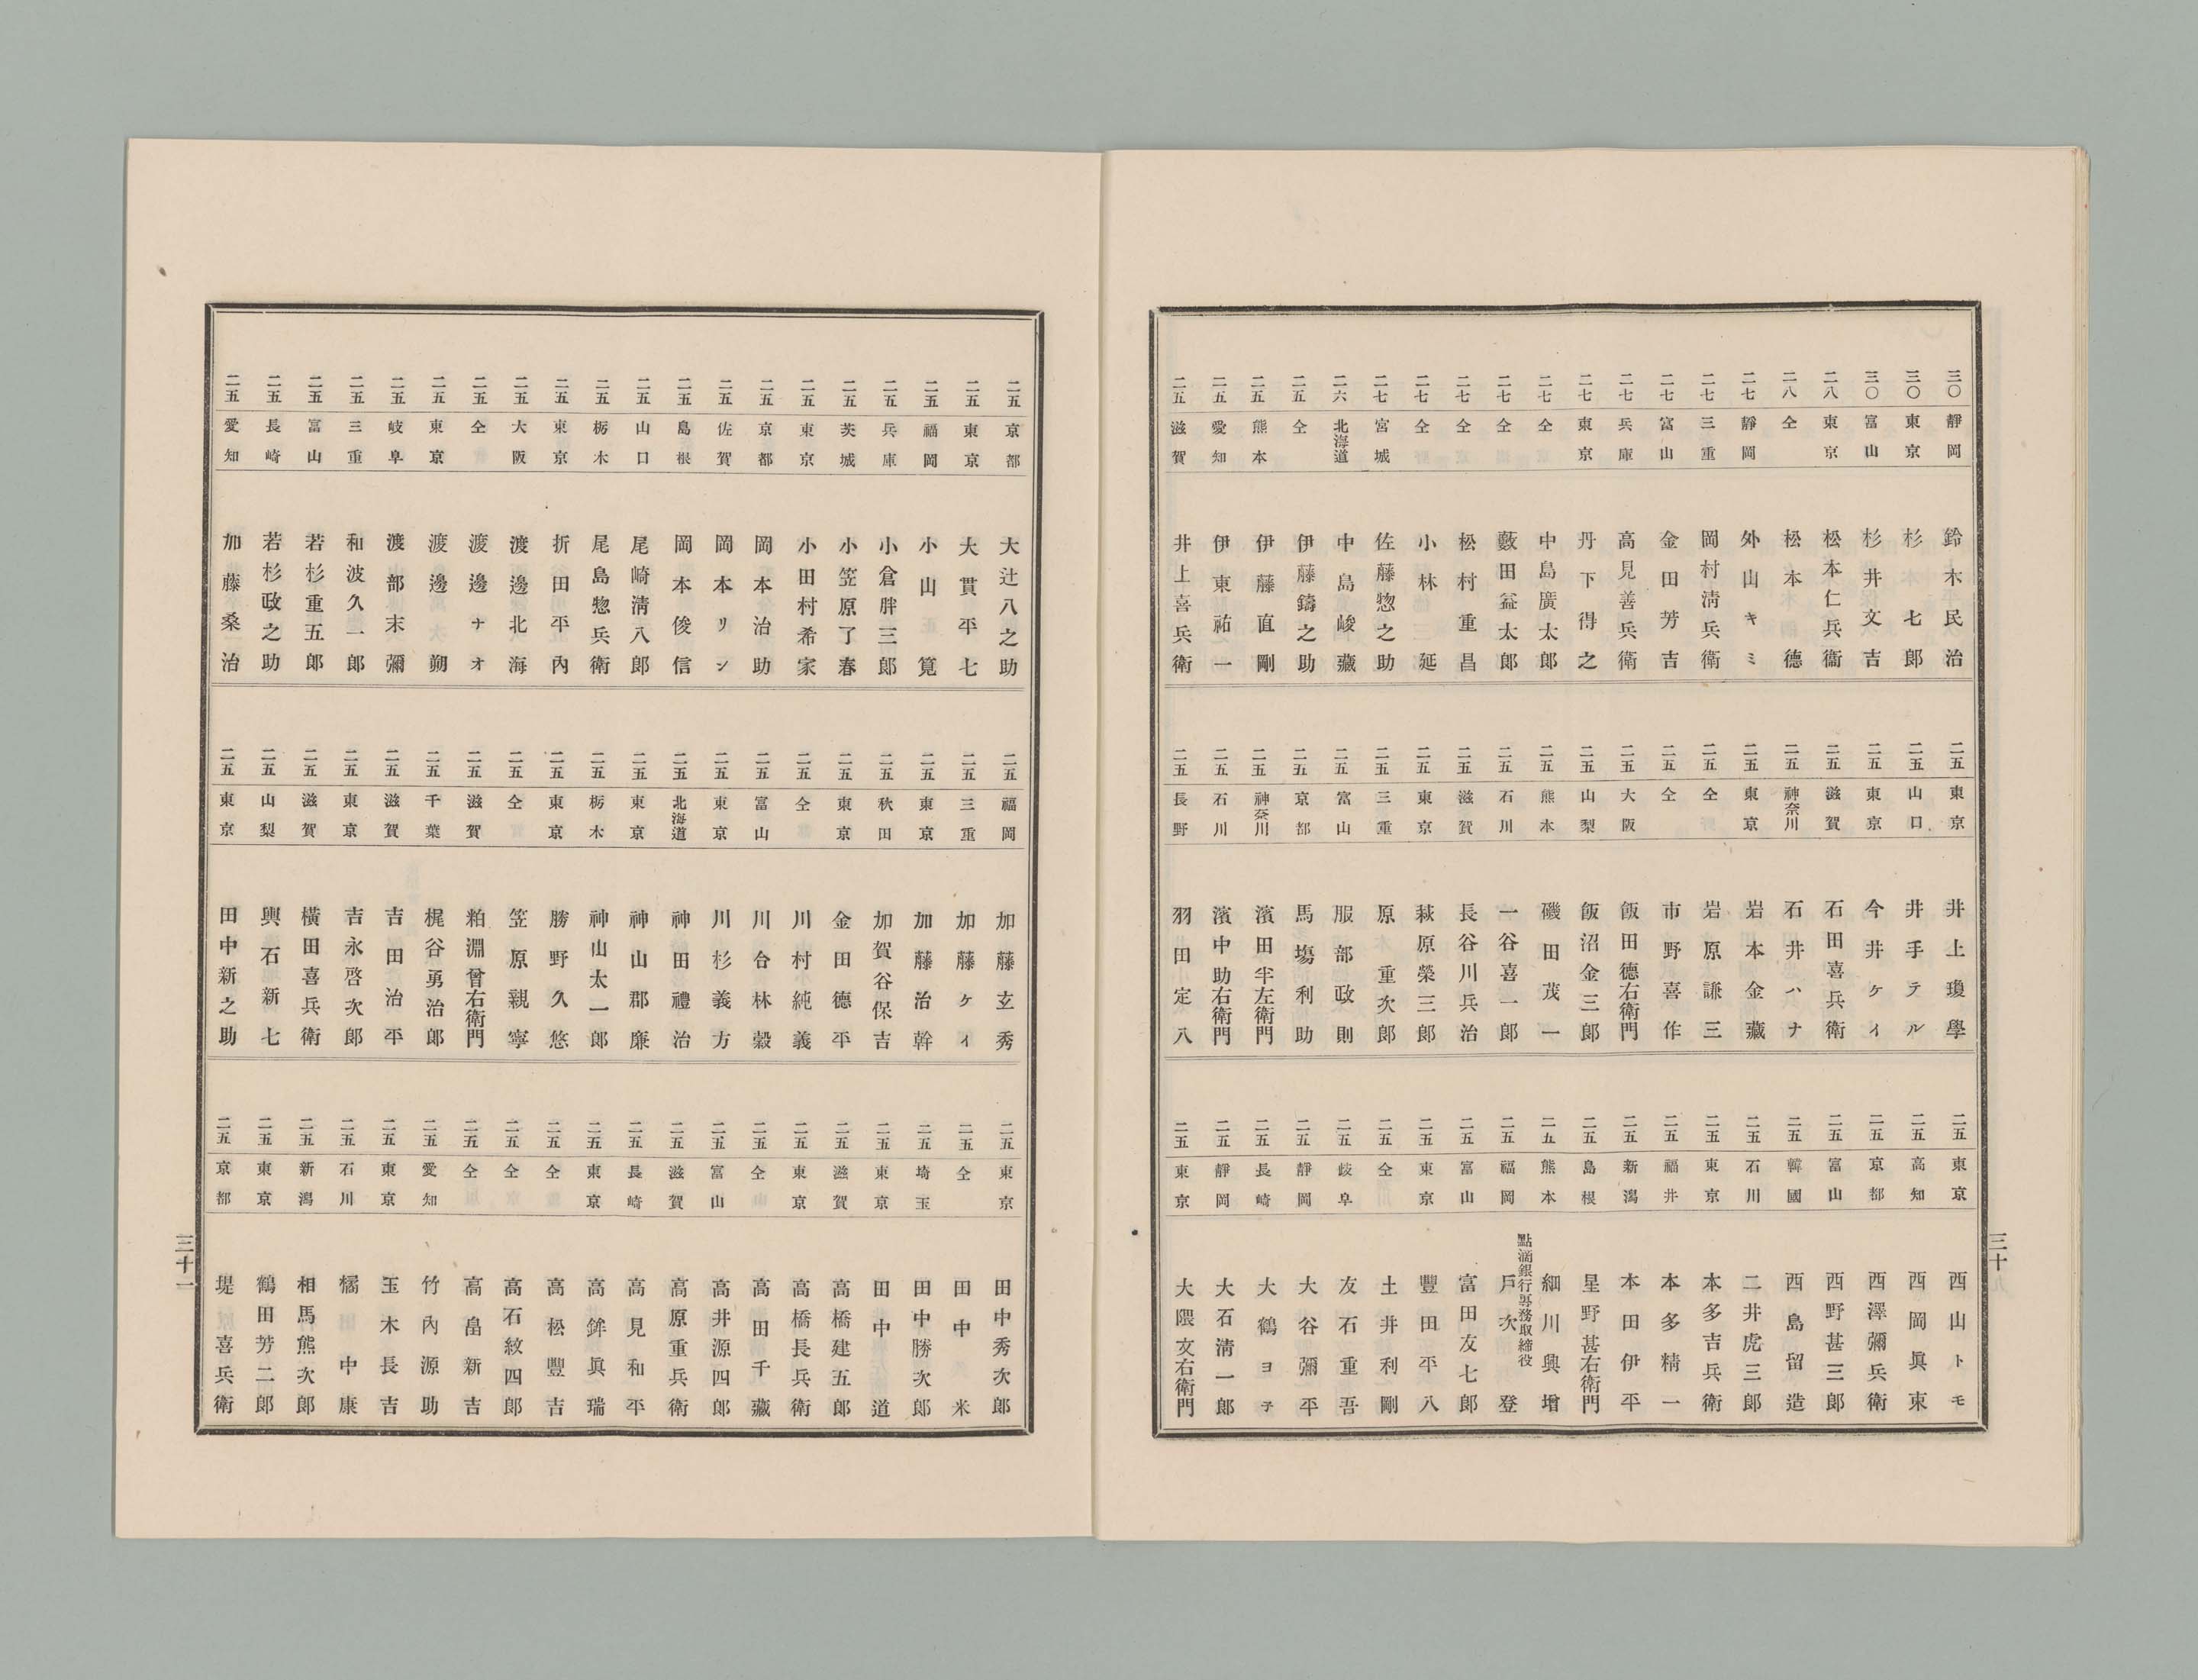 三〇 靜岡 鈴木民治
三〇 東京 杉七郎
三〇 富山 杉井文吉
二八 東京 松本仁兵衞
二八 仝 松本德
二七 靜岡 外山キミ
二七 三重 岡村淸兵衞
二七 富山 金田芳吉
二七 兵庫 高見善兵衞
二七 東京 丹下得之
二七 仝 中島廣太郎
二七 仝 藪田益太郎
二七 仝 松村重昌
二七 仝 小林延
二七 宮城 佐藤惣之助
二六 北海道 中島峻藏
二五 仝 伊藤鑄之助
二五 熊本 伊藤直剛
二五 愛知 伊東祐一
二五 滋賀 井上喜兵衞
二五 東京 井上瓊學
二五 山口 井手テル
二五 東京 今井ケイ
二五 滋賀 石田喜兵衞
二五 神奈川 石井ハナ
二五 東京 岩本金藏
二五 仝 岩原謙三
二五 仝 市野喜作
二五 大阪 飯田德右衞門
二五 山梨 飯沼金三郎
二五 熊本 磯田茂一
二五 石川 一谷喜一郎
二五 滋賀 長谷川兵治
二五 東京 萩原榮三郎
二五 三重 原重次郎
二五 富山 服部政則
二五 京都 馬塲利助
二五 神奈川 濱田半左衞門
二五 石川 濱中助右衞門
二五 長野 羽田定八
二五 東京 西山トモ
二五 高知 西岡眞東
二五 京都 西澤彌兵衞
二五 富山 西野甚三郎
二五 韓國 西島留造
二五 石川 二井虎三郎
二五 東京 本多吉兵衞
二五 福井 本多精一
二五 新潟 本田伊平
二五 島根 星野甚右衞門
二五 熊本 細川興增
二五 福岡 銀行專務取締役 戶次登
二五 富山 富田友七郎
二五 東京 豐田平八
二五 仝 土井利剛
二五 岐阜 友石重吾
二五 靜岡 大谷彌平
二五 長崎 大鶴ヨテ
二五 靜岡 大石淸一郎
二五 東京 大隈文右衞門
三十
二五 京都 大辻八之助
二五 東京 大貫平七
二五 福岡 小山筧
二五 兵庫 小倉胖三郎
二五 茨城 小笠原了春
二五 東京 小田村希家
二五 京都 岡本治助
二五 佐賀 岡本リン
二五 島根 岡本俊信
二五 山口 尾崎淸八郎
二五 栃木 尾島惣兵衞
二五 東京 折田平內
二五 大阪 渡邊北海
二五 仝 渡邊ナオ
二五 東京 渡邊朔
二五 岐阜 渡部末彌
二五 三重 和波久一郎
二五 富山 若杉重五郎
二五 長崎 若杉政之助
二五 愛知 加藤桑治
二五 福岡 加藤玄秀
二五 三重 加藤ケイ
二五 東京 加藤治幹
二五 秋田 加賀谷保吉
二五 東京 金田德平
二五 仝 川村純義
二五 富山 川合林穀
二五 東京 川杉義方
二五 北海道 神田禮治
二五 東京 神山郡廉
二五 栃木 神山太一郎
二五 東京 勝野久悠
二五 仝 笠原親寧
二五 滋賀 粕淵曾右衞門
二五 千葉 梶谷勇治郎
二五 滋賀 吉田治平
二五 東京 吉永啓次郎
二五 滋賀 橫田喜兵衞
二五 山梨 輿石新七
二五 東京 田中新之助
二五 東京 田中秀次郎
二五 仝 田中米
二五 埼玉 田中勝次郎
二五 東京 田中道
二五 滋賀 高橋建五郎
二五 東京 高橋長兵衞
二五 仝 高田千藏
二五 富山 高井源四郎
二五 滋賀 高原重兵衞
二五 長崎 高見和平
二五 東京 高鉾眞瑞
二五 仝 高松豐吉
二五 仝 高石紋四郎
二五 仝 高畠新吉
二五 愛知 竹內源助
二五 東京 玉木長吉
二五 石川 橘中康
二五 新潟 相馬熊次郎
二五 東京 鶴田芳二郎
二五 京都 堤喜兵衞
三十一